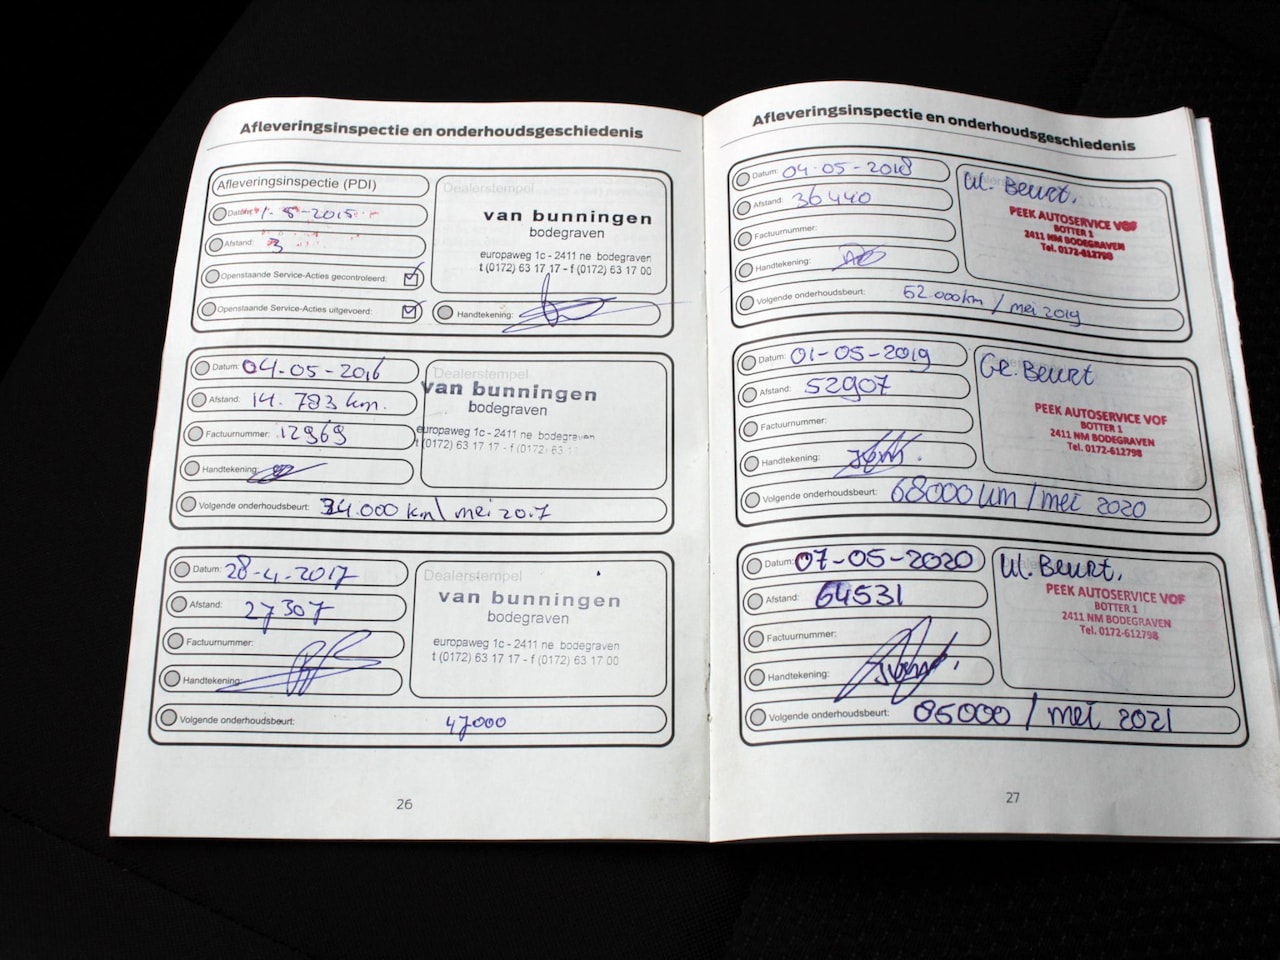 Afleveringsinspectie en onderhoudsgeschiedenis
Afleveringsinspectie (PDI)
Datum: 1-8-2015
Afstand: 3
Openstaande Service-Acties gecontroleerd:
Openstaande Service-Acties uitgevoerd:
Dealerstempel
van bunningen
bodegraven
europaweg 1c - 2411 ne bodegraven
t (0172) 63 17 17 - f (0172) 63 17 00
Handtekening:
Datum: 04-05-2016
Afstand: 14.783 km.
Factuurnummer: 12969
Handtekening:
Dealerstempel
van bunningen
bodegraven
europaweg 1c - 2411 ne bodegraven
t (0172) 63 17 17 - f (0172) 63 1
Volgende onderhoudsbeurt: 34.000 km/ mei 2017
Datum: 28-4-2017
Afstand: 27307
Factuurnummer:
Handtekening:
Dealerstempel
van bunningen
bodegraven
europaweg 1c - 2411 ne bodegraven
t (0172) 63 17 17 - f (0172) 63 17 00
Volgende onderhoudsbeurt: 47000
26
Afleveringsinspectie en onderhoudsgeschiedenis
Datum: 04-05-2018
Afstand: 36440
Factuurnummer:
Handtekening:
Kl. Beurt.
PEEK AUTOSERVICE VOF
BOTTER 1
2411 NM BODEGRAVEN
Tel. 0172-612798
Volgende onderhoudsbeurt: 52000km / mei 2019
Datum: 01-05-2019
Afstand: 52907
Factuurnummer:
Handtekening:
Gr. Beurt
PEEK AUTOSERVICE VOF
BOTTER 1
2411 NM BODEGRAVEN
Tel. 0172-612798
Volgende onderhoudsbeurt: 68000 km / mei 2020
Datum: 07-05-2020
Afstand: 64531
Factuurnummer:
Handtekening:
Kl. Beurt.
PEEK AUTOSERVICE VOF
BOTTER 1
2411 NM BODEGRAVEN
Tel. 0172-612798
Volgende onderhoudsbeurt: 85000 / mei 2021
27